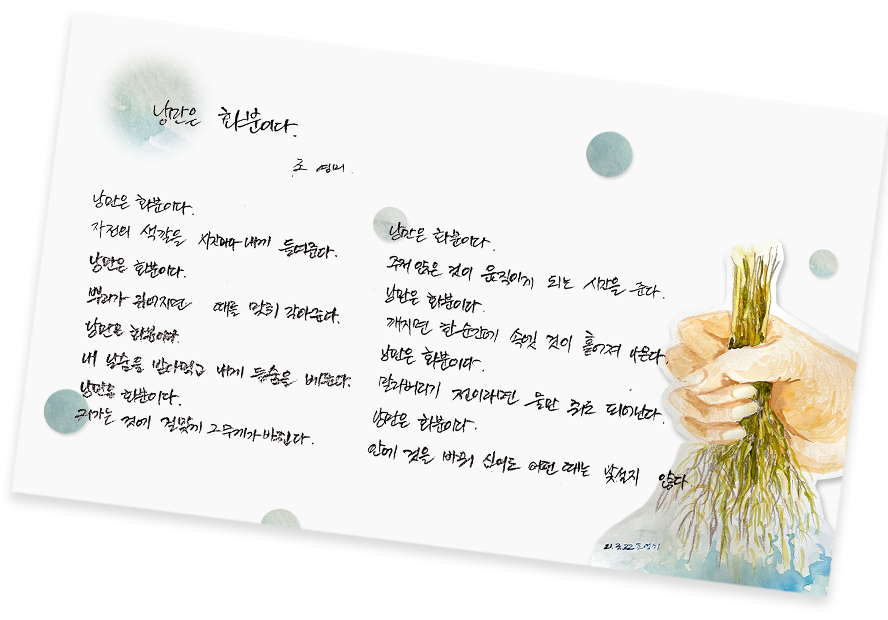 낭만은 화분이다.
조 영미.
낭만은 화분이다.
자연의 색깔을 시간마다 내게 들려준다.
낭만은 화분이다.
뿌리가 깊어지면 때를 맞춰 갈아준다.
낭만은 화분이다.
내 날숨을 받아먹고 내게 들숨을 베푼다.
낭만은 화분이다.
커가는 것에 걸맞게 그 무게가 바뀐다.
낭만은 화분이다.
주저앉은 것이 움직이게 되는 시간을 준다.
낭만은 화분이다.
깨지면 한순간에 속깃 것이 흩어져 나온다.
낭만은 화분이다.
말라버리기 전이라면 물만 줘도 피어난다.
낭만은 화분이다.
안에 것을 바꿔 심어도 어떤 때는 낯설지 않다.
조영미